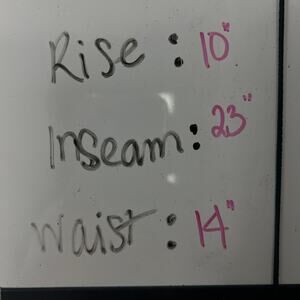 Rise : 10"
Inseam : 23"
waist : 14"